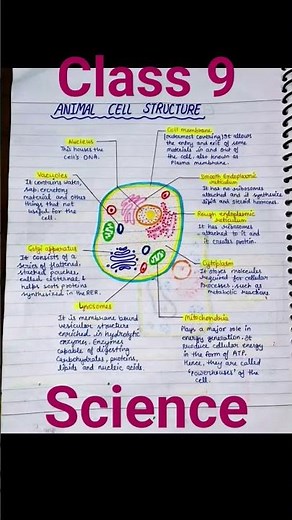 Class 9
ANIMAL CELL STRUCTURE
Nucleus
This houses the
cell's DNA.
Cell membrane
(outermost covering) It allows
the entry and exit of some
materials in and out of
the cell. also known as
Plasma membrane.
Vacuoles
It contains water,
and excretory
material and other
things that not
useful for the
cell.
Smooth Endoplasmic
reticulum
It has no ribosomes
attached and it synthesizes
lipid and steroid hormones.
Rough endoplasmic
reticulum
It has ribosomes
attached to it and
it creates protein.
Golgi apparatus
It consists of a
series of flattened,
stacked pouches,
called cisternae &
helps sorts proteins
synthesized in the RER.
Cytoplasm
It stores molecules
required for cellular
processes such as
metabolic reactions
Lysosomes
It is membrane bound
vesicular structure
enriched in hydrolytic
enzymes. Enzymes
capable of digesting
Carbohydrates, proteins,
lipids and nucleic acids.
Mitochondria
Pays a major role in
energy generation. It
produce cellular energy
in the form of ATP.
Hence, they are called
"Powerhouses" of the
cell.
Science